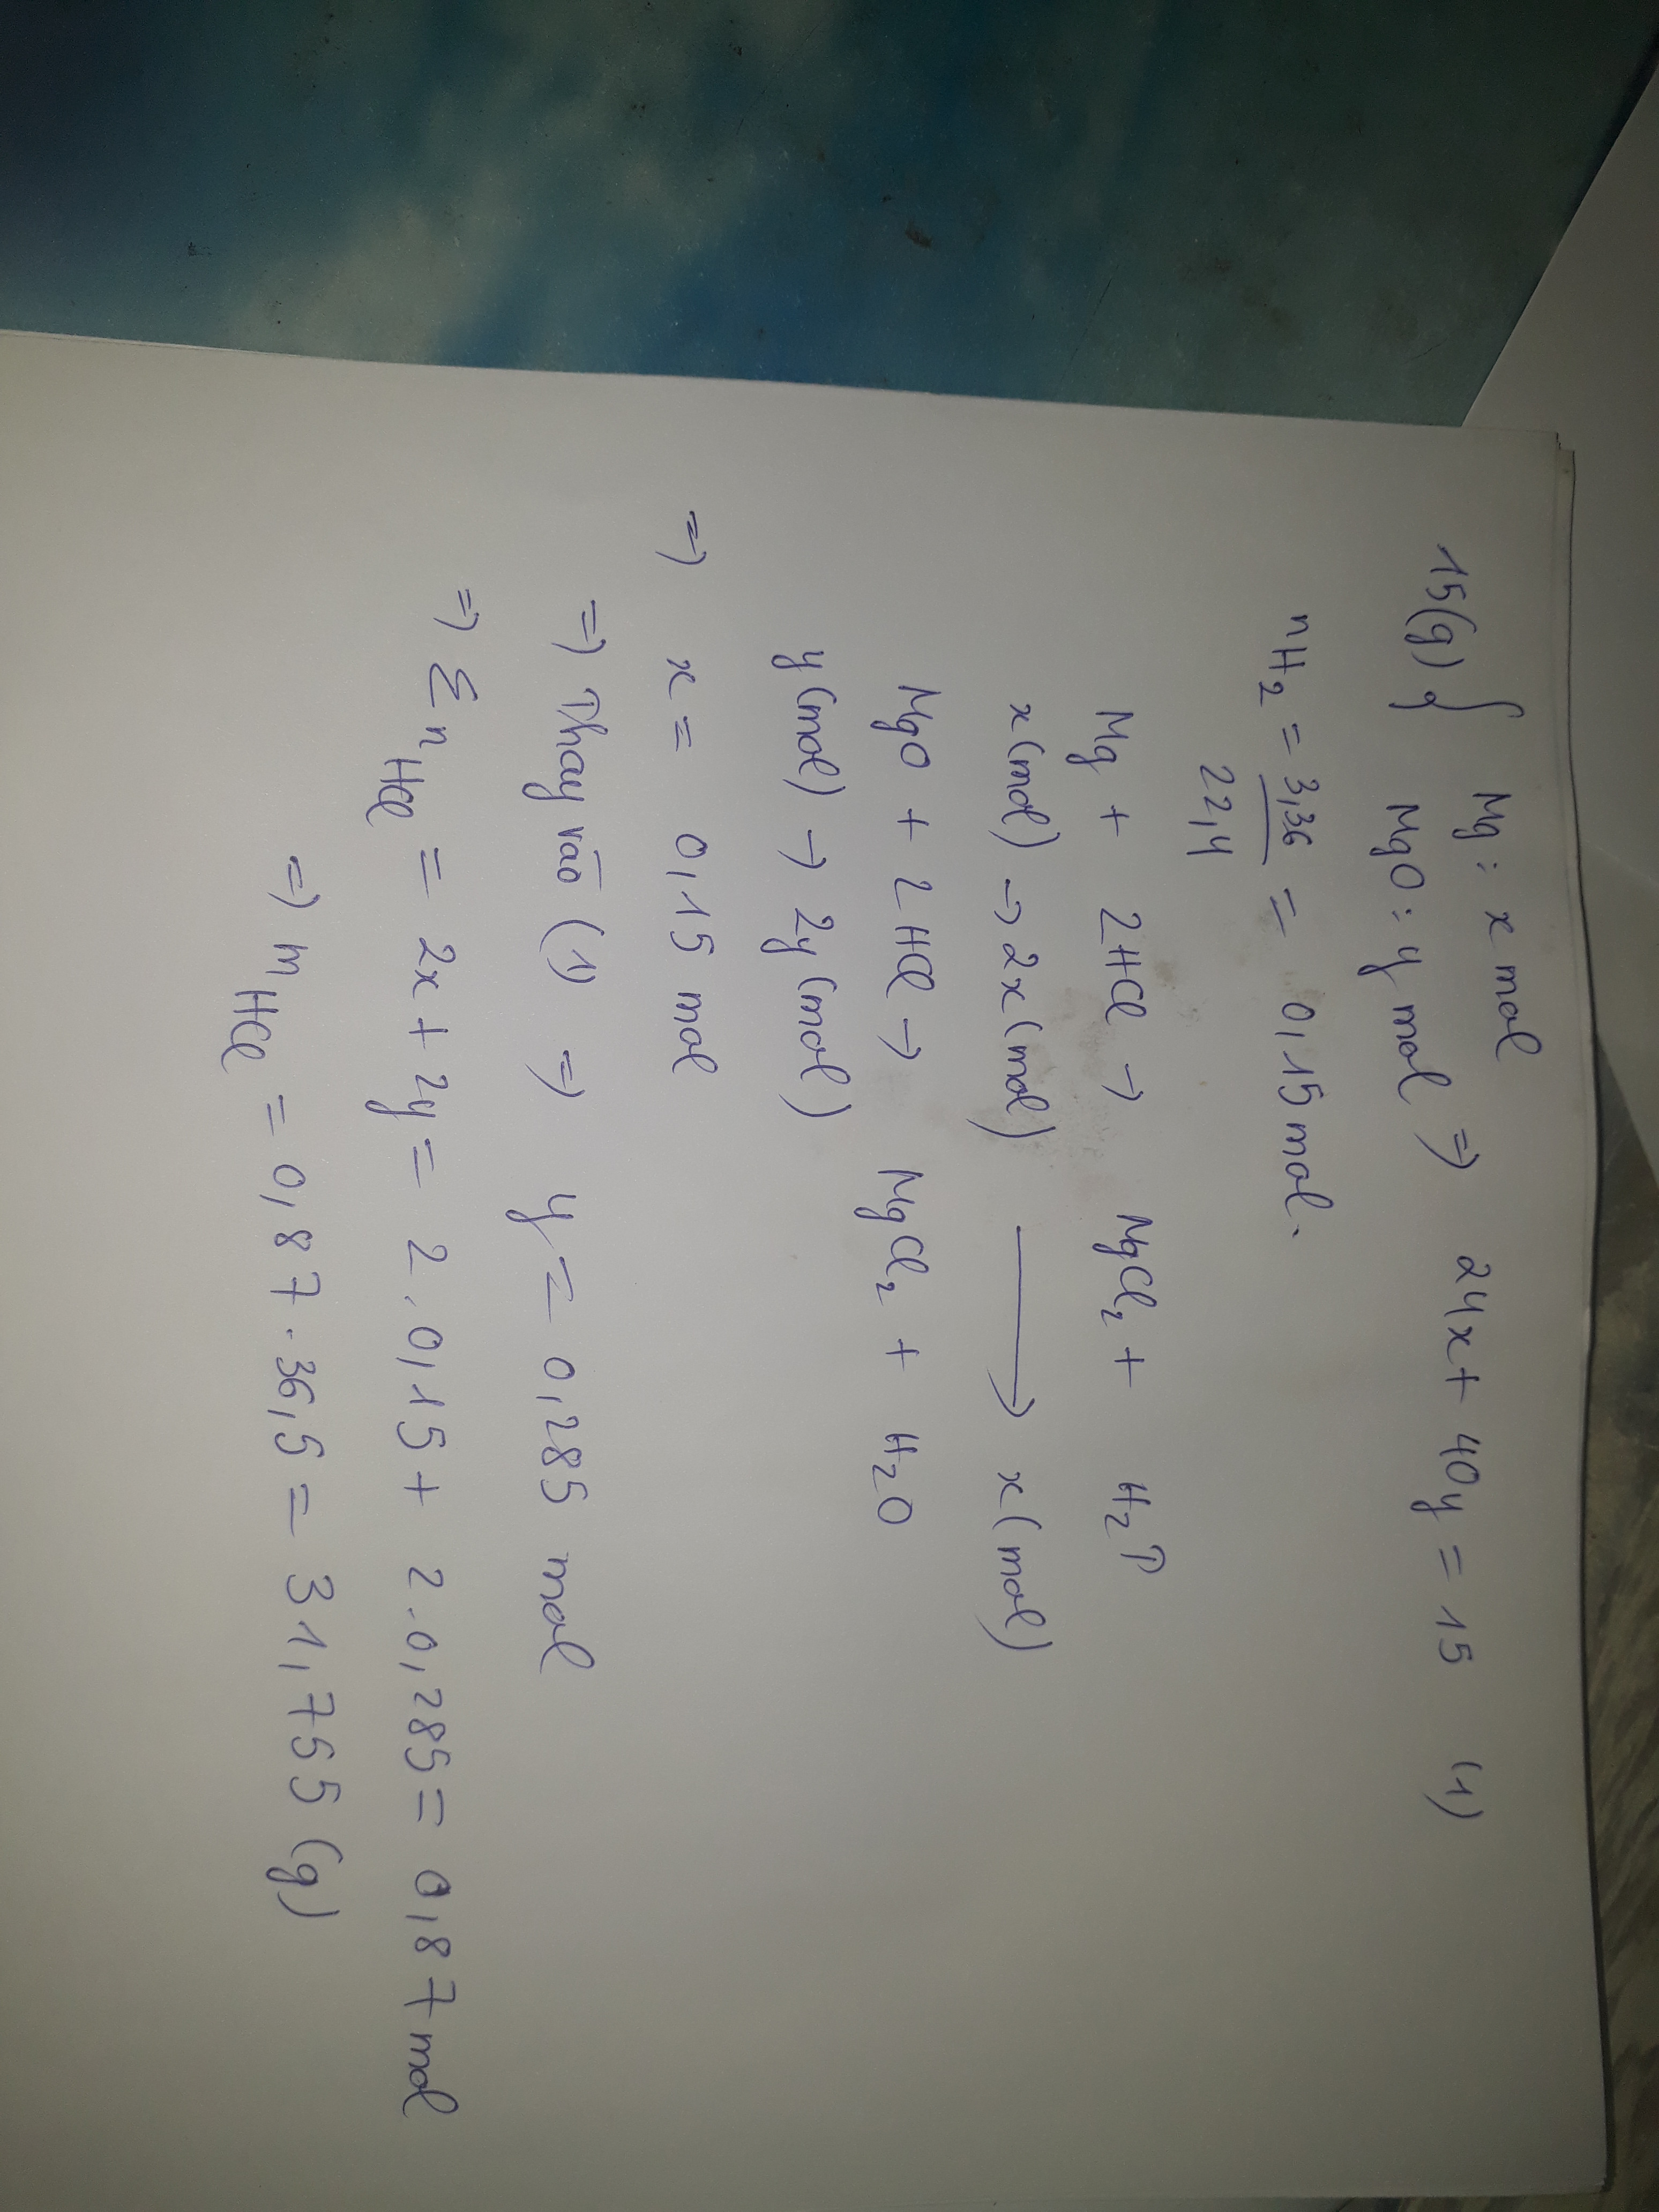 15(g) { Mg: x mol
MgO: y mol => 24x + 40y = 15 (1)
nH2 = 3,36 / 22,4 = 0,15 mol.
Mg + 2HCl → MgCl2 + H2↑
x(mol) → 2x(mol) → x(mol)
MgO + 2HCl → MgCl2 + H2O
y(mol) → 2y(mol)
=> x = 0,15 mol
=> Thay vào (1) => y = 0,285 mol
=> Σ nHCl = 2x + 2y = 2.0,15 + 2.0,285 = 0,87 mol
=> mHCl = 0,87.36,5 = 31,755 (g)